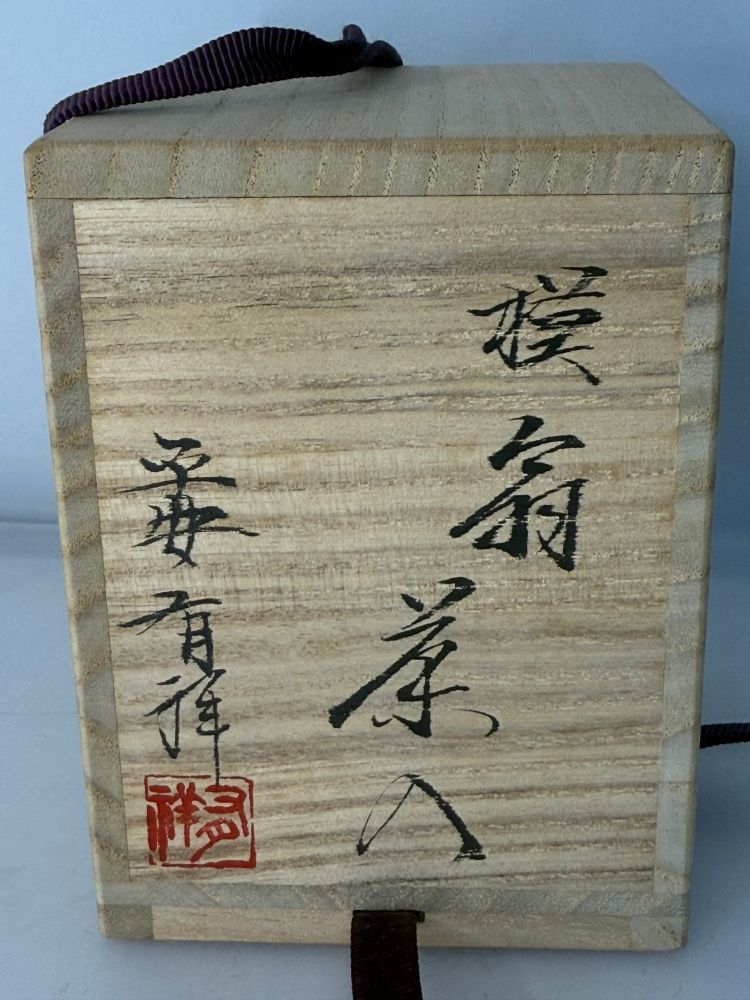 模翁茶入
平安 有祥
有祥